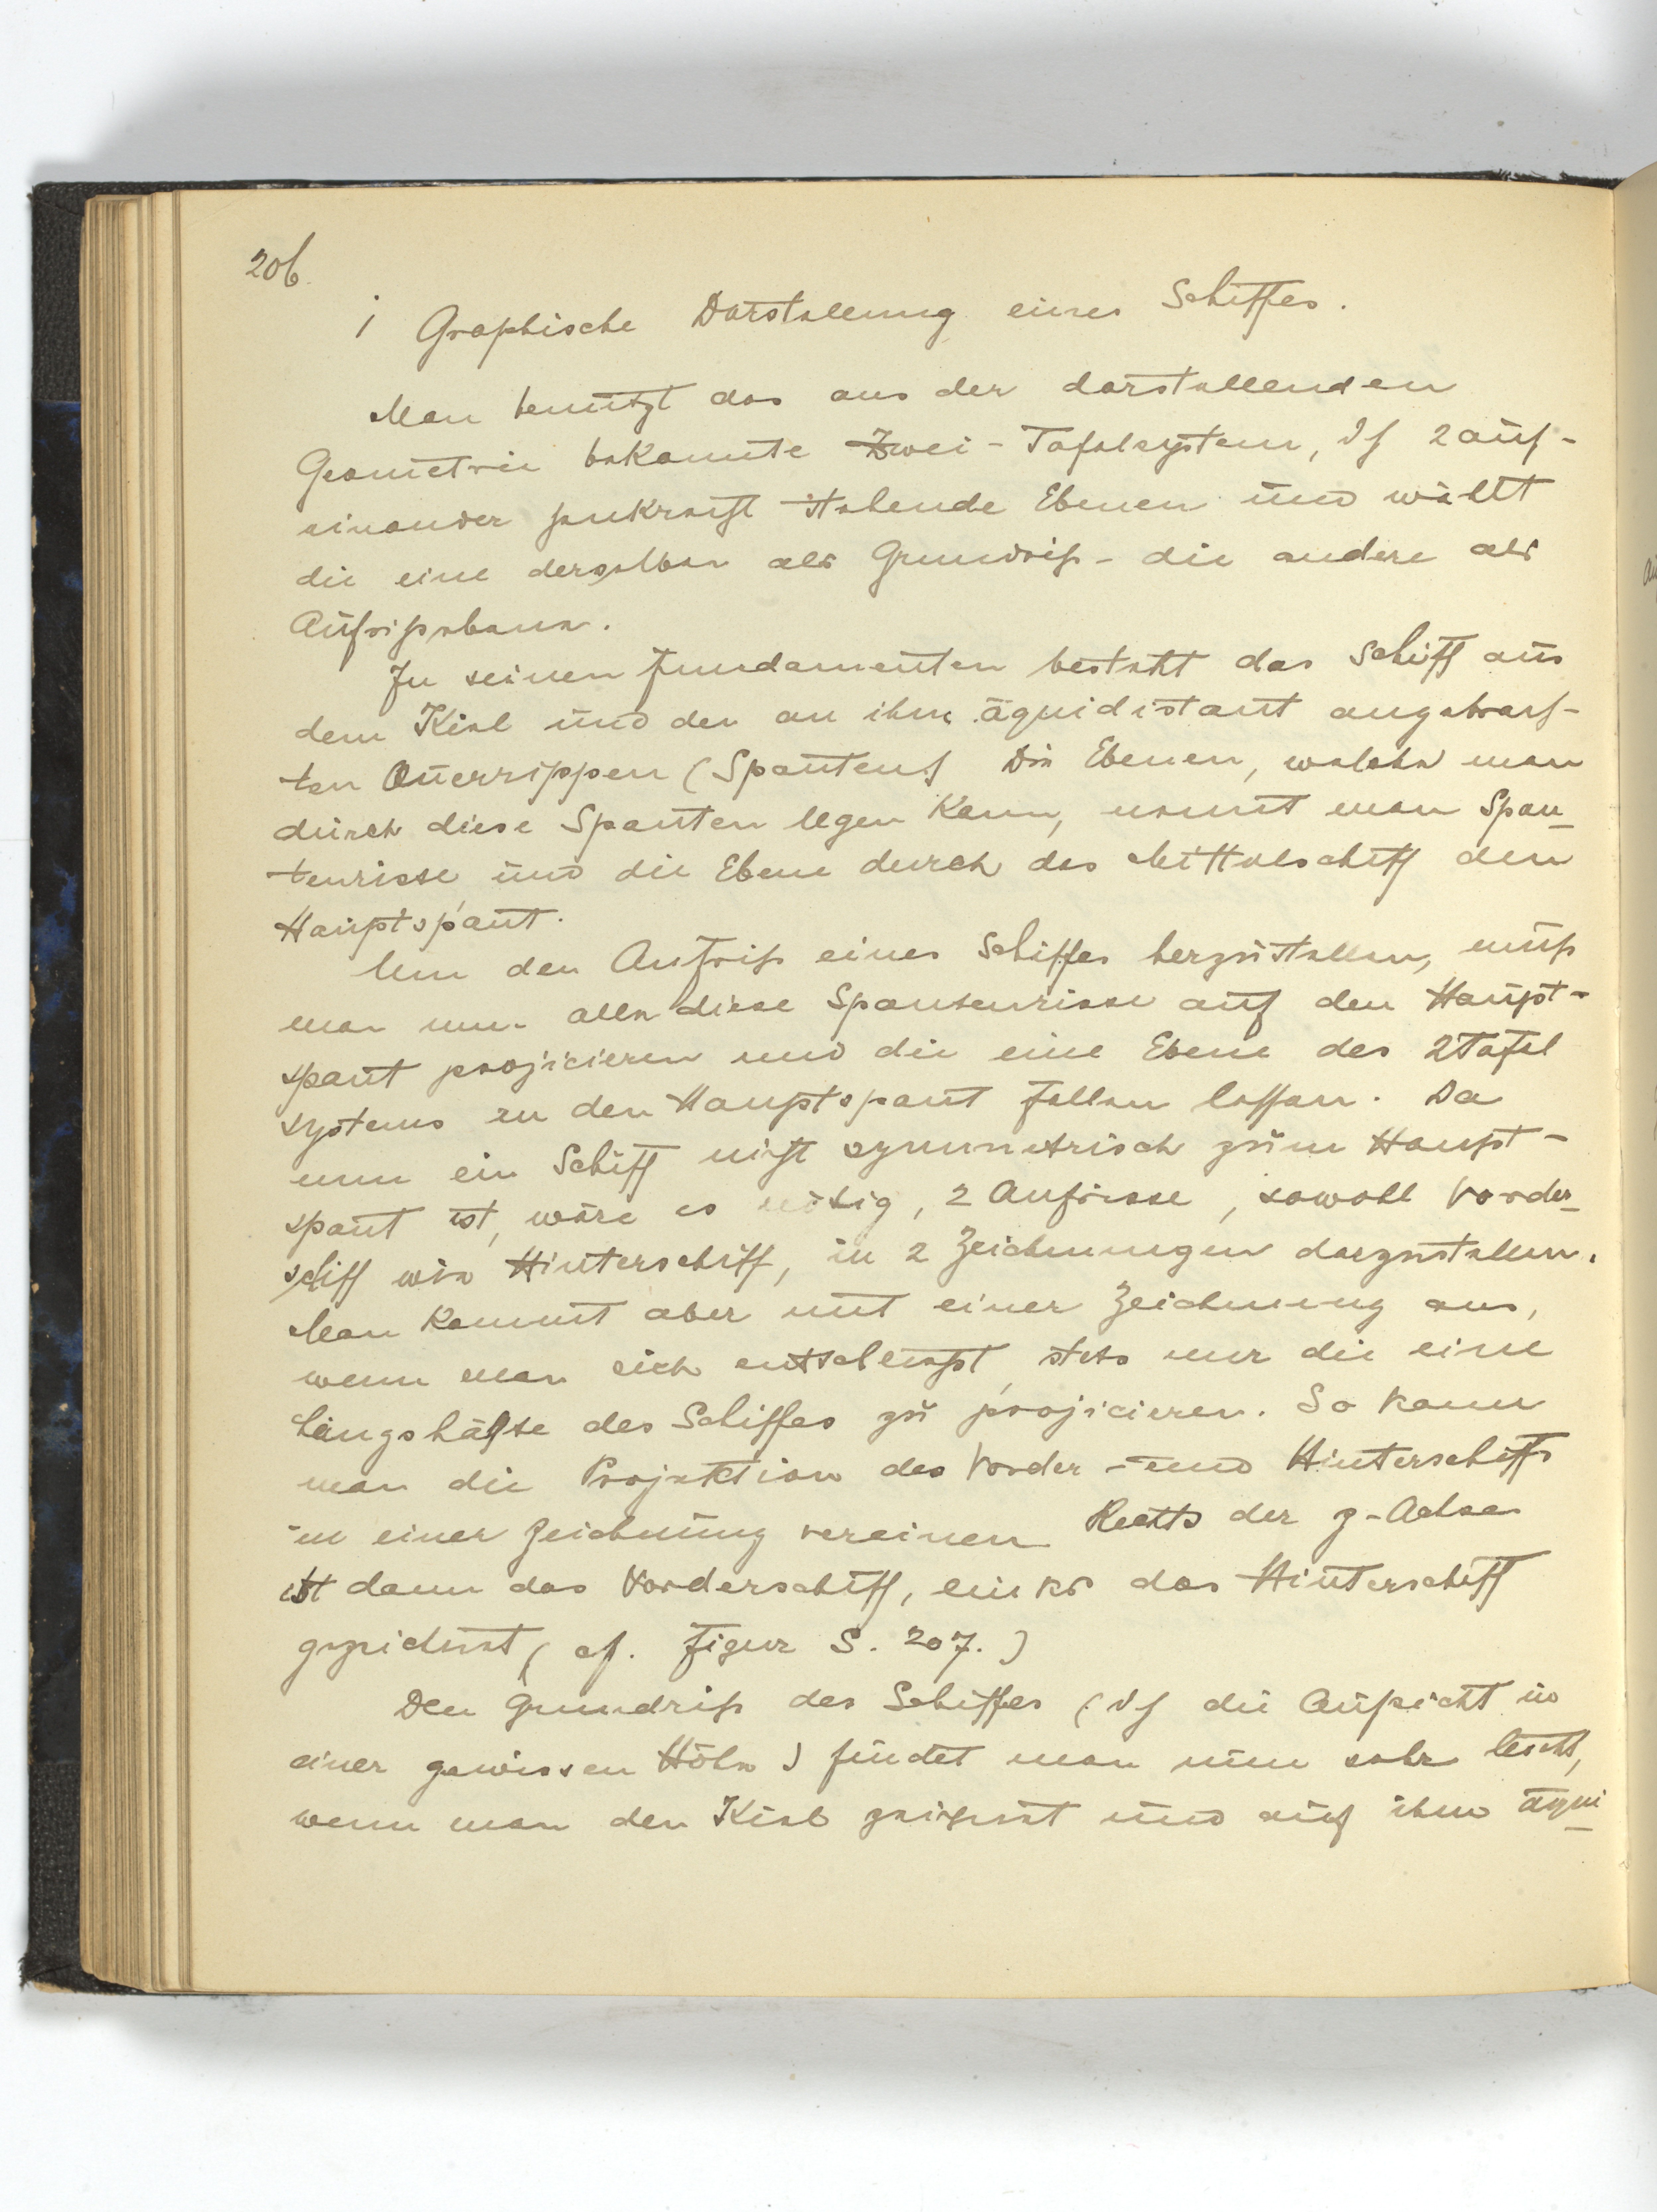 206.
1 Graphische Darstellung eines Schiffes.
Man benutzt das aus der darstellenden
Geometrie bekannte Zwei-Tafelsystem, d h 2 auf-
einander senkrecht stehende Ebenen und wählt
die eine derselben als Grundriß- die andere als
Aufrißebene.
In seinen Fundamenten besteht das Schiff aus
dem Kiel und den an ihm äquidistant angebrach-
ten Querrippen (Spanten) Die Ebenen, welche man
durch diese Spanten legen kann, nennt man Span-
tenrisse und die Ebene durch das Mittelschiff den
Hauptspant.
Um den Aufriß eines Schiffes herzustellen, muß
man nun alle diese Spantenrisse auf den Haupt-
spant projicieren und die eine Ebene des 2Tafel
systems in den Hauptspant fallen lassen. Da
nun ein Schiff nicht symmetrisch zum Haupt-
spant ist, wäre es nötig, 2 Aufrisse, sowohl Vorder-
schiff wie Hinterschiff, in 2 Zeichnungen darzustellen.
Man kommt aber mit einer Zeichnung aus,
wenn man sich entschliesst, stets nur die eine
Längshälfte des Schiffes zu projicieren. So kann
man die Projektion des Vorder- und Hinterschiffs
in einer Zeichnung vereinen Rechts der z-Achse
ist dann das Vorderschiff, links das Hinterschiff
gezeichnet (cf. Figur S. 207.)
Den Grundriß des Schiffes (d h die Aufsicht in
einer gewissen Höhe) findet man nun sehr leicht,
wenn man den Kiel zeichnet und auf ihm äqui-